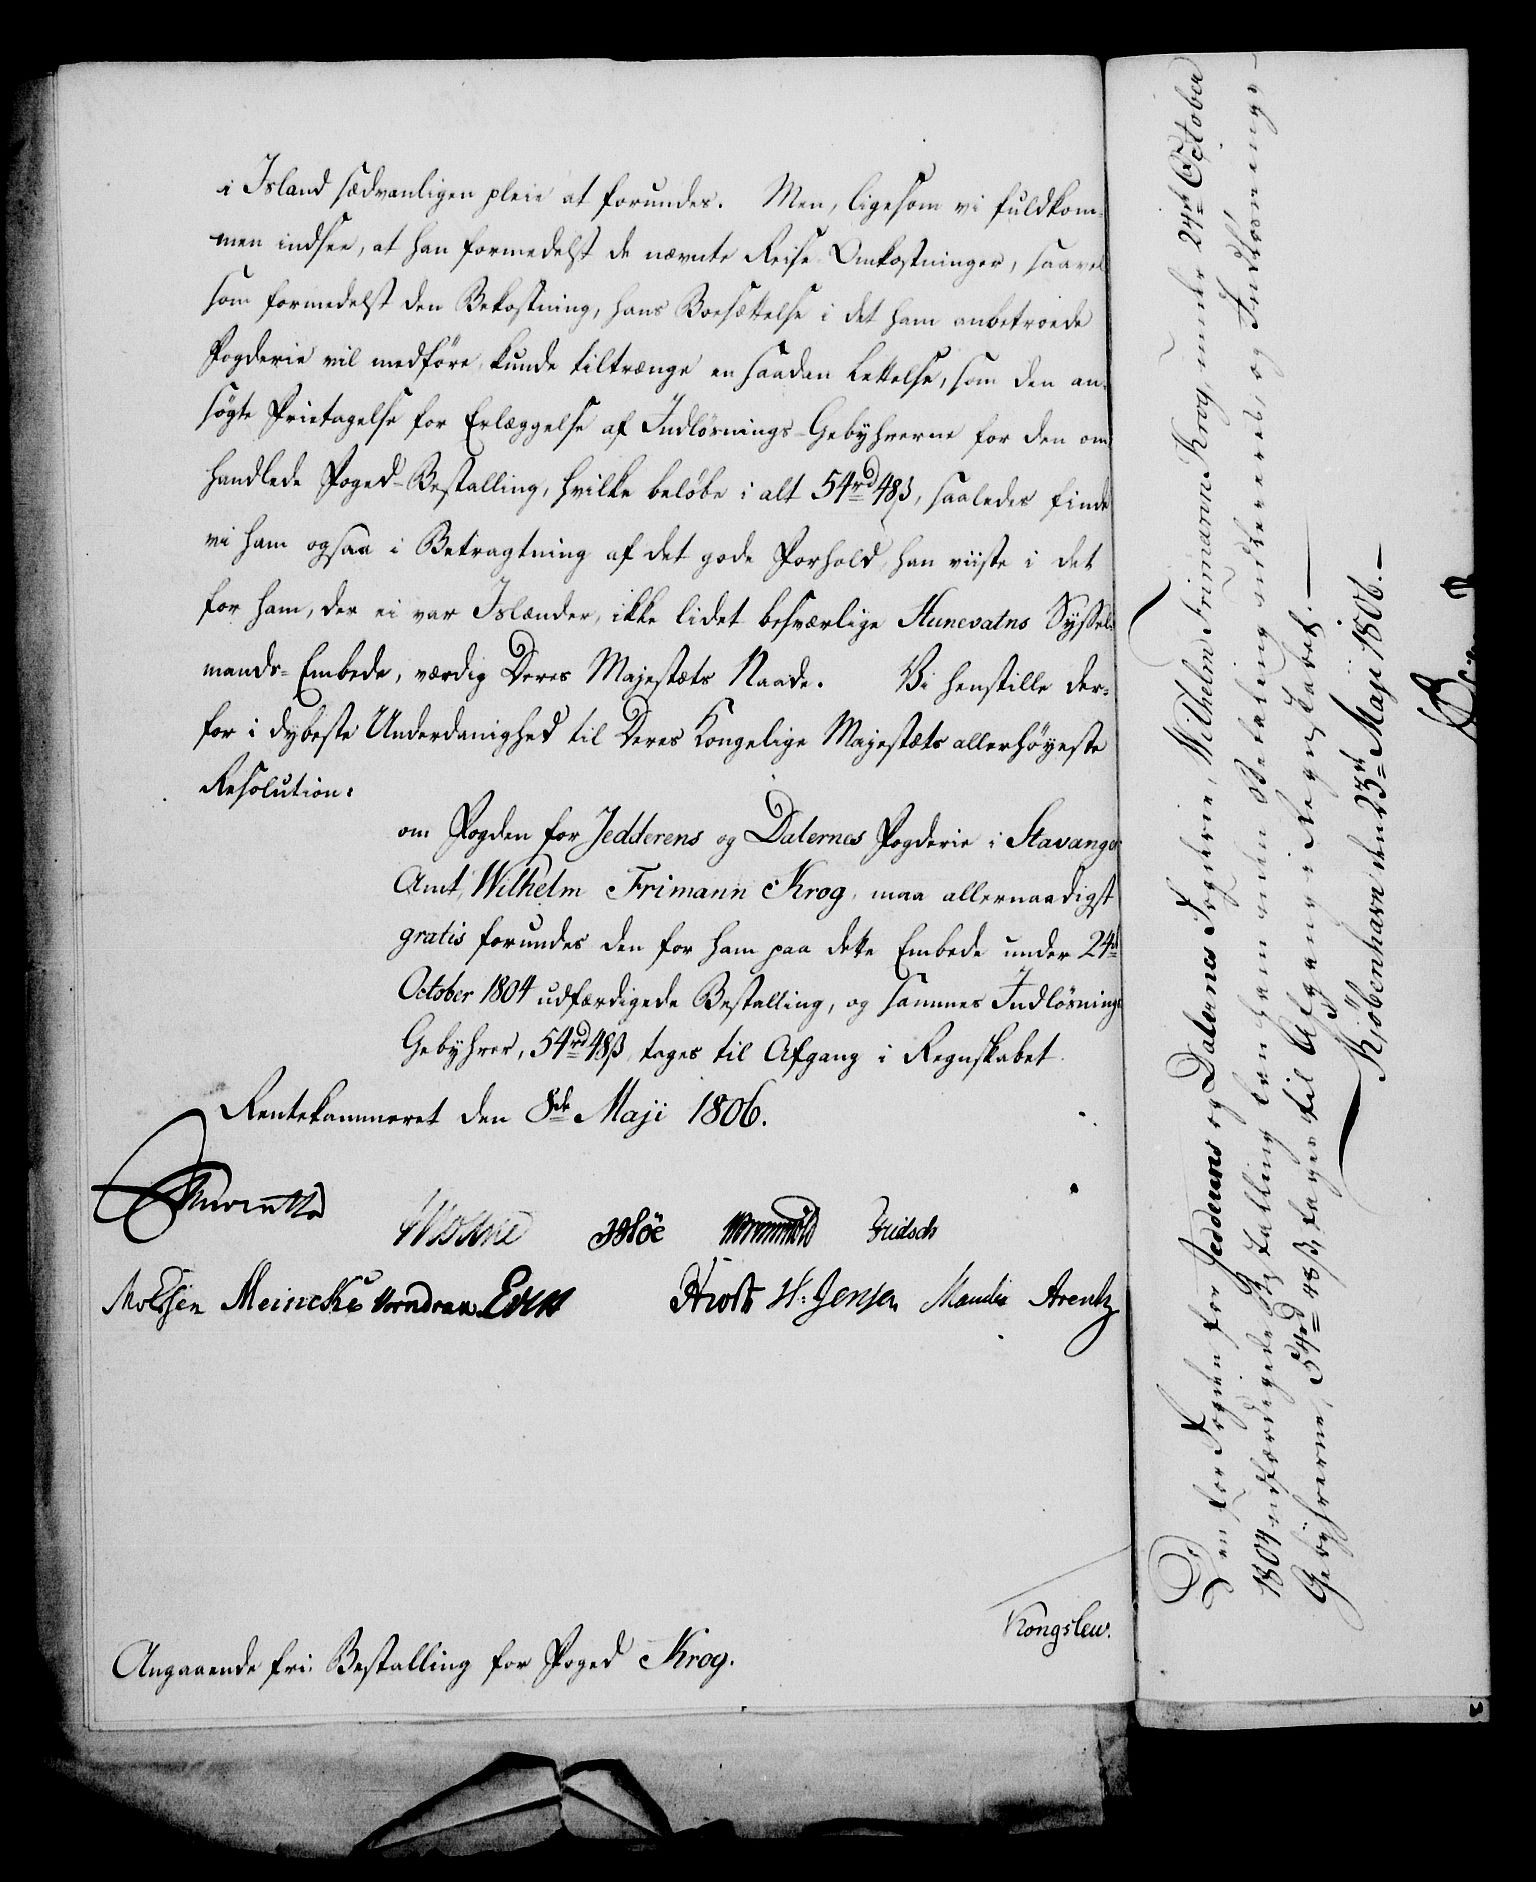 i Island sædvanligen pleie at forundes. Men, ligesom vi fuldkom-
men indsee, at han formedelst de nævnte Reise Omkostninger, saavel
som formedelst den Bekostning, hans Boesættelse i det ham anbetroede
Fogderie vil medføre, kunde tiltrænge en saadan Lettelse, som den an-
søgte Fritagelse for Erlæggelse af Indløsnings-Gebyhrerne for den om-
handlede Foged-Bestalling, hvilke beløbe i alt 54rd 48ß, saaledes finde
vi ham ogsaa i Betragtning af det gode Forhold, han viiste i det
for ham, der ei var Islænder, ikke lidet besværlige Hunevatns Syssel-
mands-Embede, værdig Deres Majestæts Naade. Vi henstille der-
for i dybeste Underdanighed til Deres Kongelige Majestæts allerhøyeste
Resolution:
om Fogden for Jedderens og Dalernes Fogderie i Stavanger
Amt, Wilhelm Frimann Krog, maa allernaadigst
gratis forundes den for ham paa dette Embede under 24de
October 1804 udfærdigede Bestalling, og sammes Indløsnings
Gebyhrer, 54rd 48ß, tages til Afgang i Regnskabet.
Rentekammeret den 8de Maji 1806.
Meincke Vorndran
H: Jensen Arentz
Kongslew.
Angaaende fri Bestalling for Foged Krog.
Den for Fogden for Jedderens og Dalernes Fogderie, Wilhelm Frimann Krog, under 24de October
1804 udfærdigede Bestalling kan ham uden Betaling udleveres, og Indløsnings-
Gebyhrerne, 54rd 48ß, tages til Afgang i Regnskabet.
Kjøbenhavn den 23de Maji 1806.